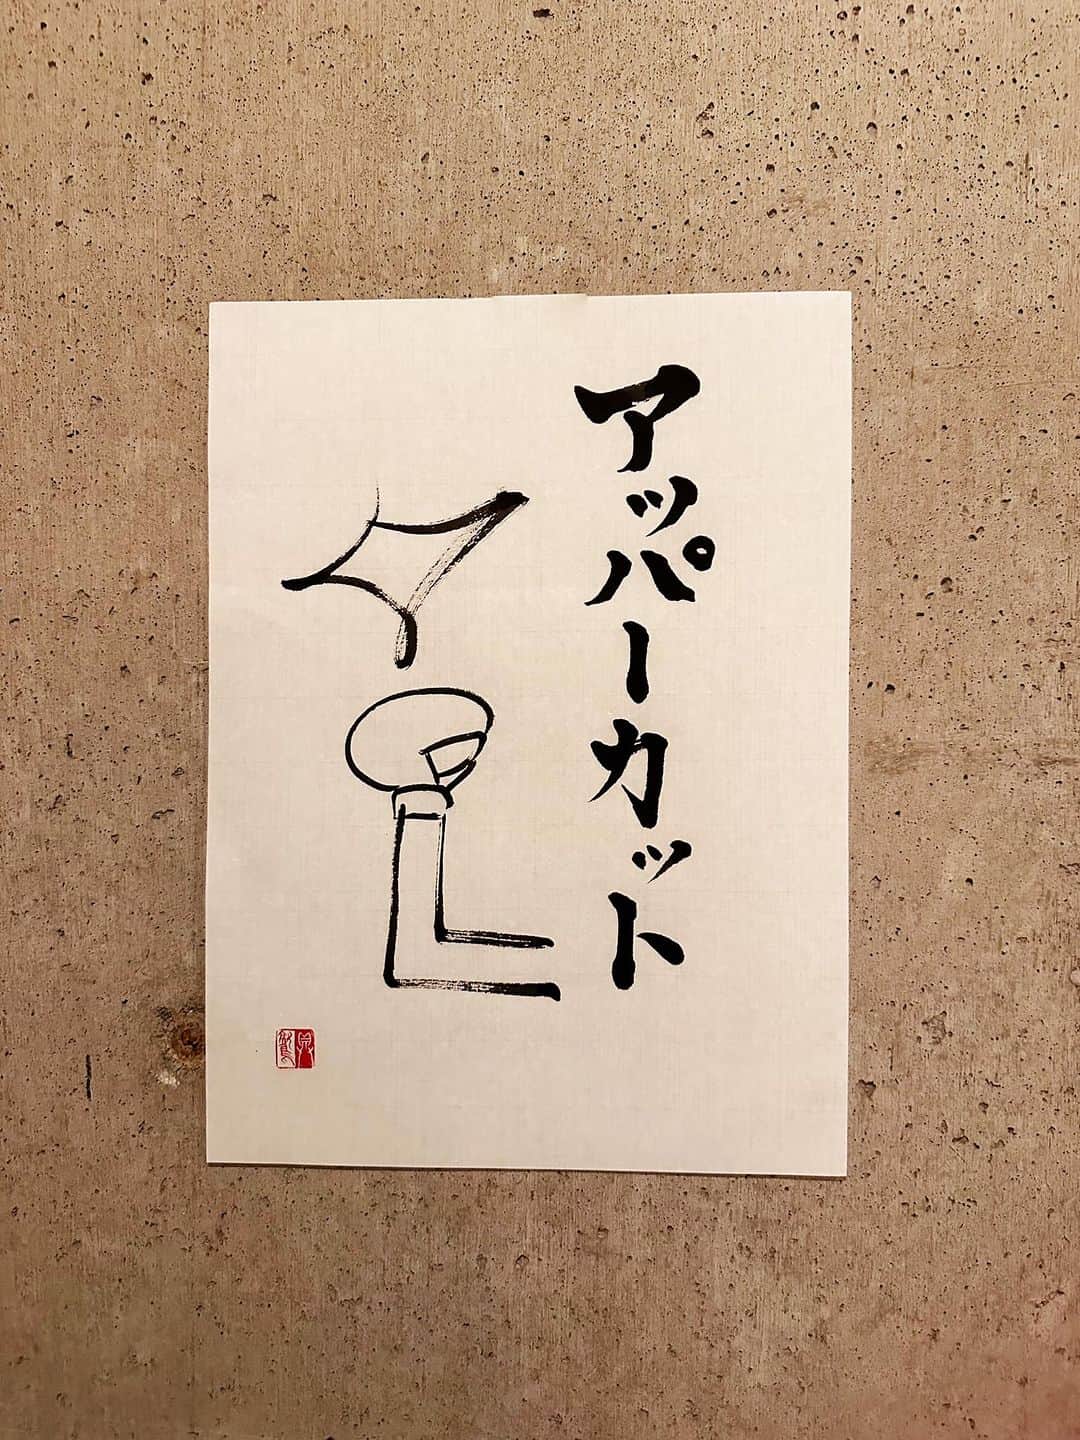 アッパーカット